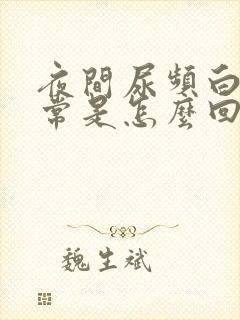 夜間尿頻白
常是怎麼回
魏生斌